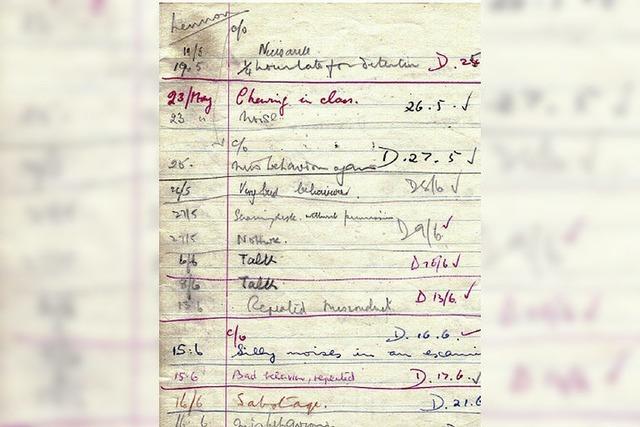 Lennon c/o
19/5 Nuisance.
19.5 1/4 hour late for detention D. 25
23/May Chewing in class. 26.5. ✓
23 " Noise
c/o
25. Misbehaviour again D. 27.5 ✓
26/5 Very bad behaviour. D8/6 ✓
27/5 without permission D9/6 ✓
27/5 No
6/6 Talk D 10/6 ✓
8/6 Talk
13.6 Repeated Misconduct D 13/6. ✓
c/o D. 16.6. ✓
15.6 Silly noises in an
15.6 Bad behaviour, repeated D. 17.6. ✓
16/6 Sabotage. D. 21.6
16.6